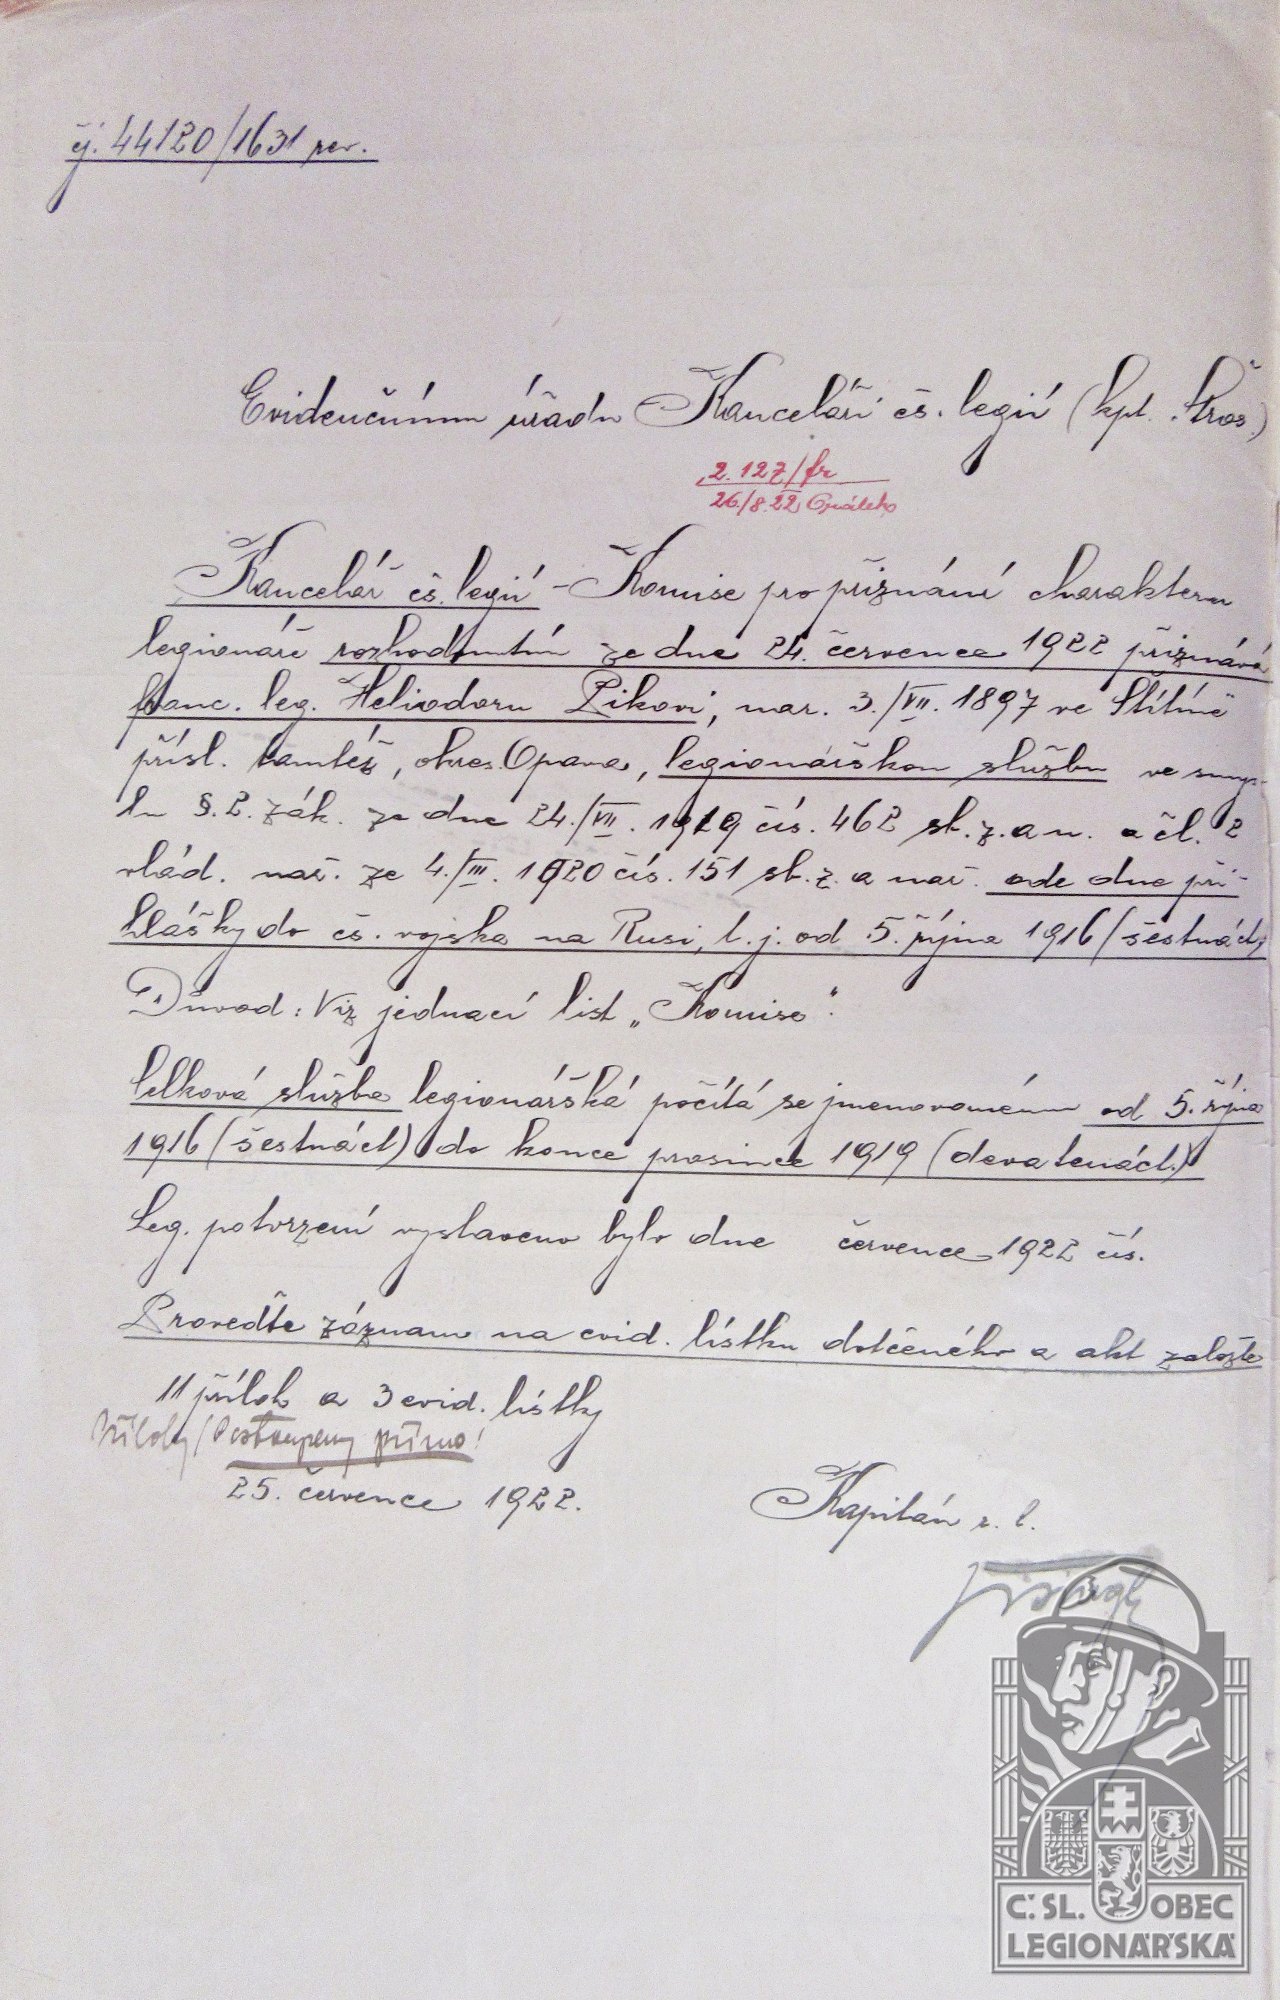 čj. 44120/1631 per.
Evidenčnímu úřadu Kanceláři čs. legií (kpt. Kros)
2.127/fr
26./8.22
Kancelář čs. legií - Komise pro přiznání charakteru
legionáře rozhodnutím ze dne 24. července 1922 přiznává
franc. leg. Heliodoru Pikovi, nar. 3./VII. 1897 ve Štítině
přísl. tamtéž, okres Opava, legionářskou službu ve smys-
lu §. 2. zák. ze dne 24./VII. 1919 čís. 462 sb. z. a n. a čl. 2
vlád. nař. ze 4./III. 1920 čís. 151 sb. z. a nař. ode dne při-
hlášky do čs. vojska na Rusi, t. j. od 5. října 1916 (šestnáct)
Důvod: Viz jednací list „Komise".
Celková služba legionářská počítá se jmenovanému od 5. října
1916 (šestnáct) do konce prosince 1919 (devatenáct.)
Leg. potvrzení vystaveno bylo dne července 1922 čís.
Proveďte záznam na evid. lístku dotčeného a akt založte
11 příloh a 3 evid. lístky
Přílohy postoupeny přímo!
25. července 1922.
Kapitán r. l.
Č.SL. OBEC
LEGIONÁŘSKÁ